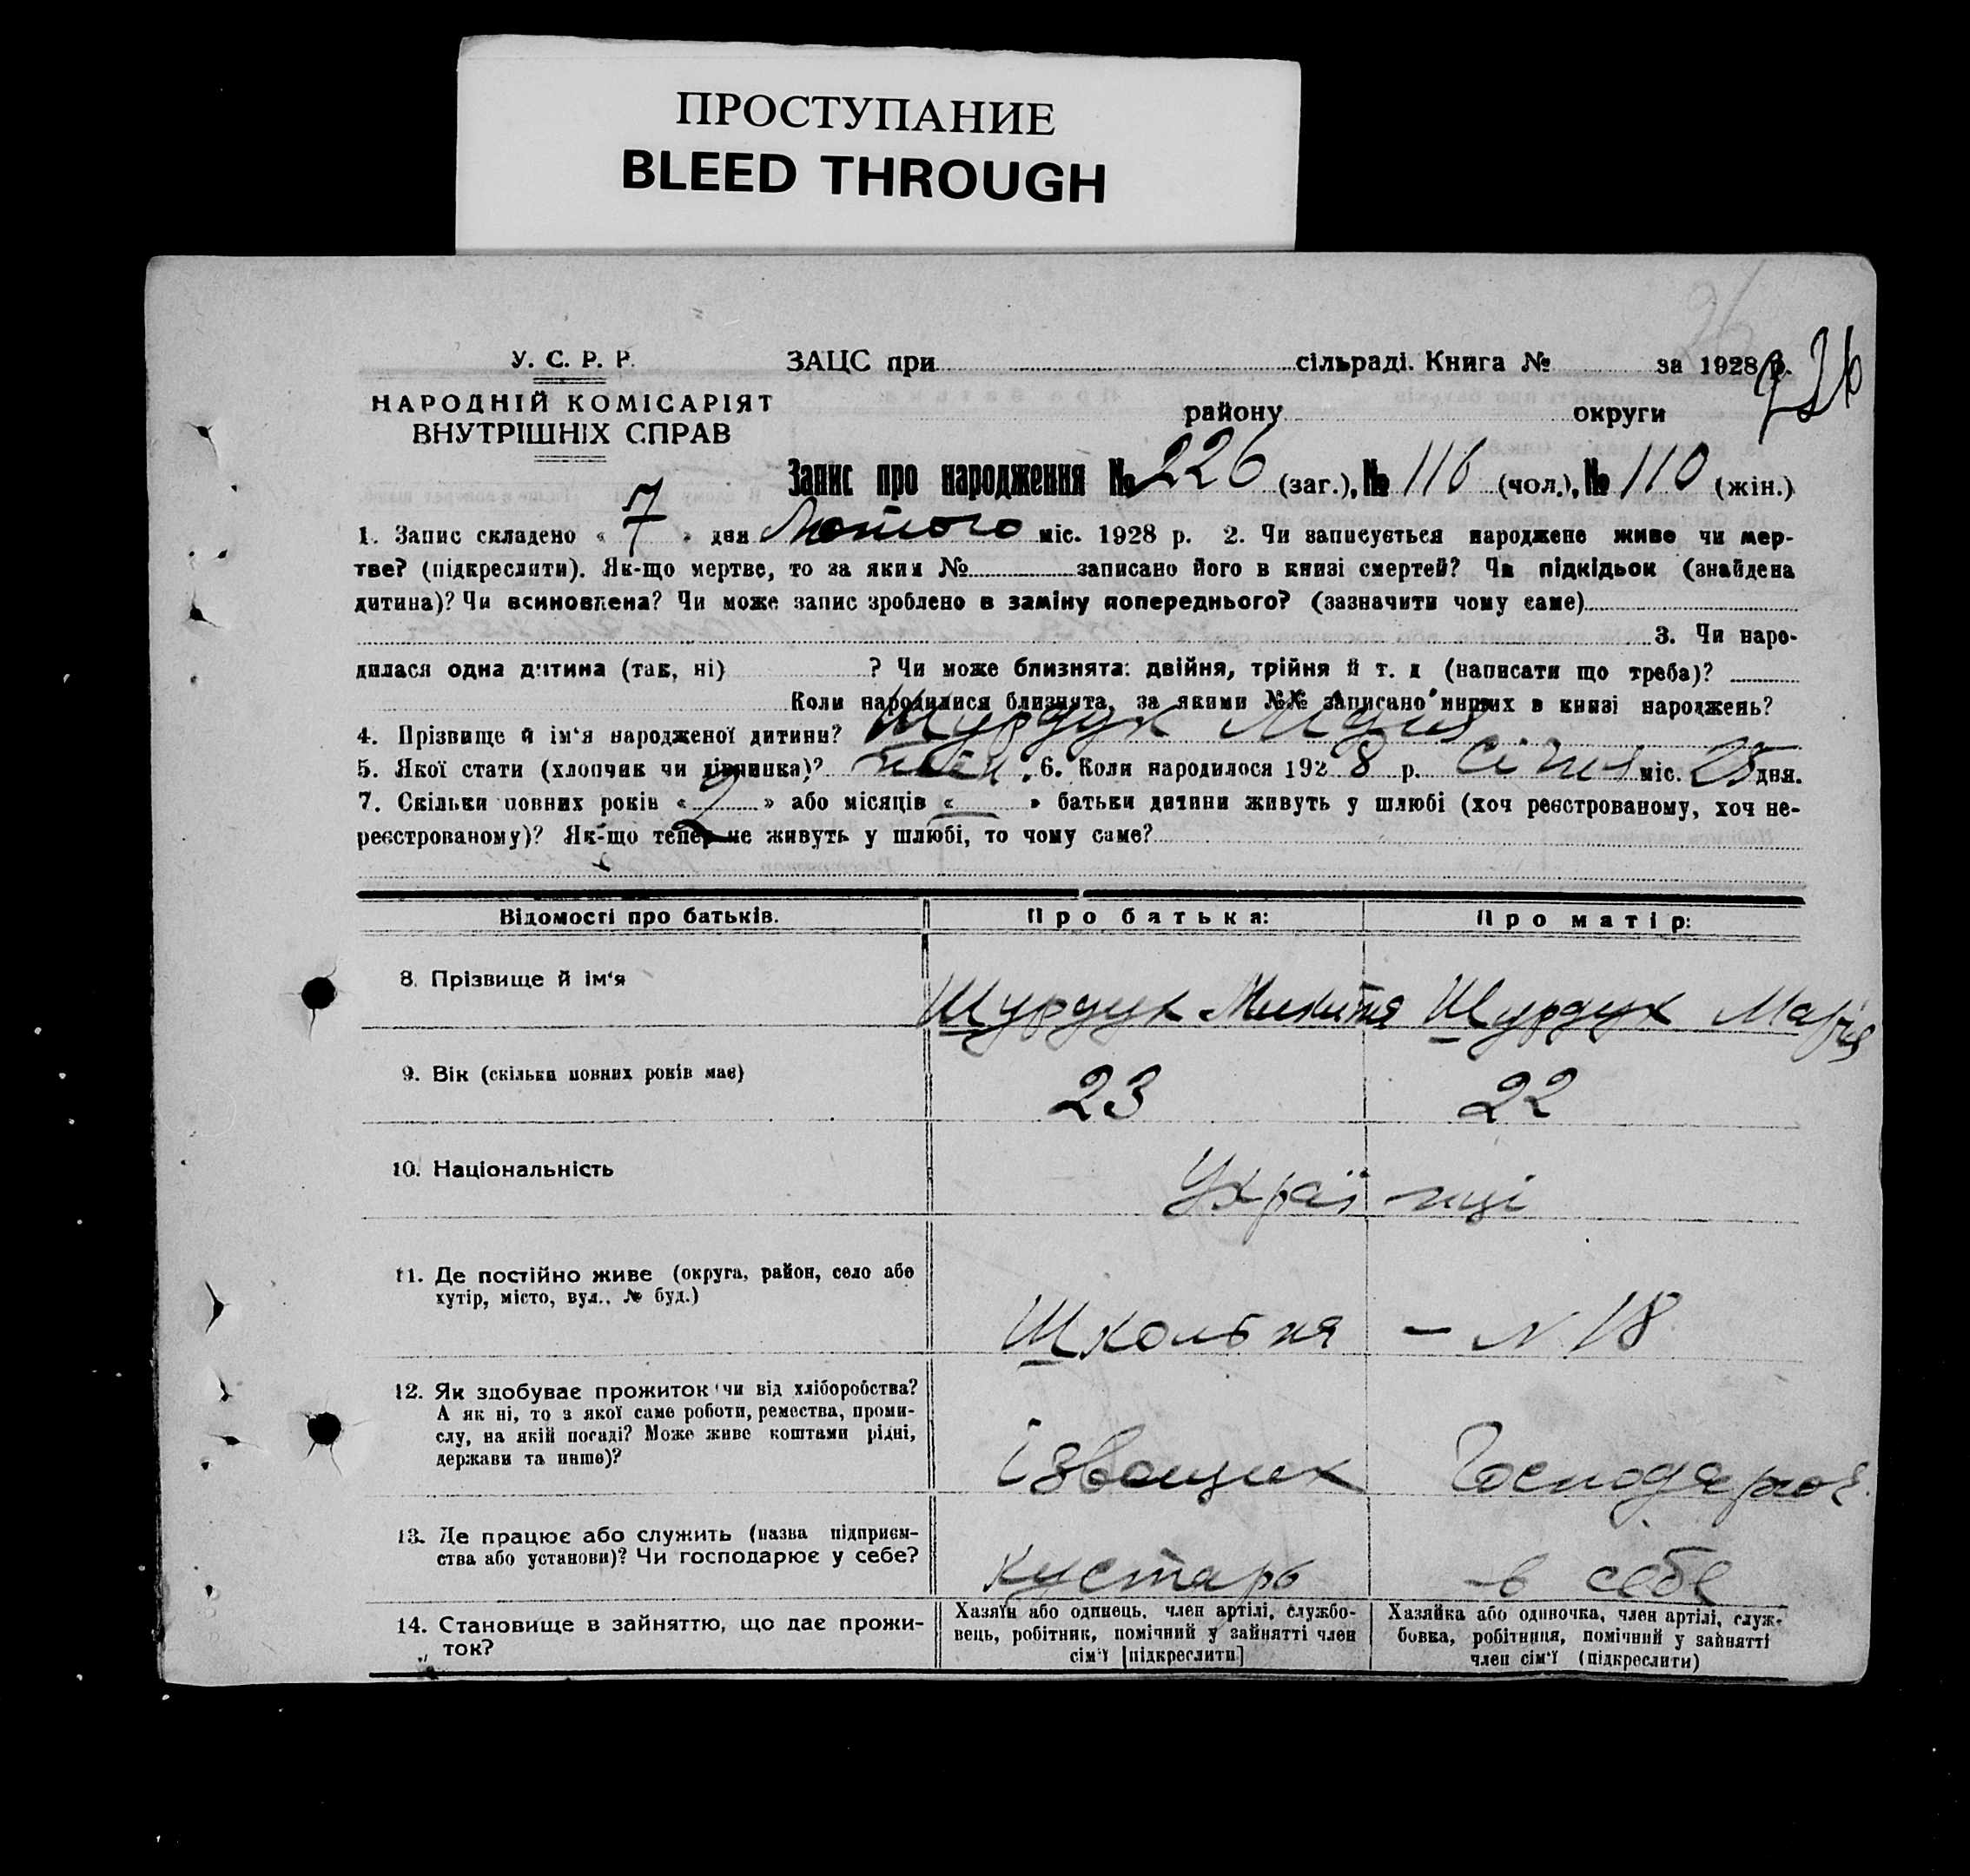 ПРОСТУПАНИЕ
BLEED THROUGH
26
У. С. Р. Р. ЗАЦС при сільраді. Книга № за 1928 р.
226
НАРОДНІЙ КОМІСАРІЯТ
ВНУТРІШНІХ СПРАВ
району округи
Запис про народження № 226 (заг.), № 116 (чол.), № 110 (жін.)
1. Запис складено « 7 » дня Лютого міс. 1928 р. 2. Чи записується народжене живе чи мер-
тве? (підкреслити). Як-що мертве, то за яким № записано його в книзі смертей? Чи підкідьок (знайдена
дитина)? Чи всиновлена? Чи може запис зроблено в заміну попереднього? (зазначити чому саме)
3. Чи наро-
дилася одна дитина (так, ні) ? Чи може близнята: двійня, трійня й т. д (написати що треба)?
Коли народилися близнята, за якими №№ записано инших в книзі народжень?
4. Прізвище й ім‘я народженої дитини? Шурдук
5. Якої стати (хлопчик чи дівчинка)? 6. Коли народилося 1928 р. Січня міс. 25 дня.
7. Скільки повних років « 2 » або місяців « — » батьки дитини живуть у шлюбі (хоч реєстрованому, хоч не-
реєстрованому)? Як-що тепер не живуть у шлюбі, то чому саме?
Відомості про батьків. Про батька: Про матір:
8. Прізвище й ім‘я Шурдук Микита Шурдук Марія
9. Вік (скільки повних років має) 23 22
10. Національність Українці
11. Де постійно живе (округа, район, село або
хутір, місто, вул., № буд.)
Школьня — N 18
12. Як здобуває прожиток чи від хліборобства?
А як ні, то з якої саме роботи, ремества, проми-
слу, на якій посаді? Може живе коштами рідні,
держави та инше)?
Ізвощик Господарює
13. Де працює або служить (назва підприєм-
ства або установи)? Чи господарює у себе?
кустарь в себе
14. Становище в зайняттю, що дає прожи-
ток?
Хазяїн або одинець, член артілі, службо-
вець, робітник, помічний у зайнятті член
сім‘ї [підкреслити]
Хазяйка або одиночка, член артілі, служ-
бовка, робітниця, помічний у зайнятті
член сім‘ї (підкреслити)